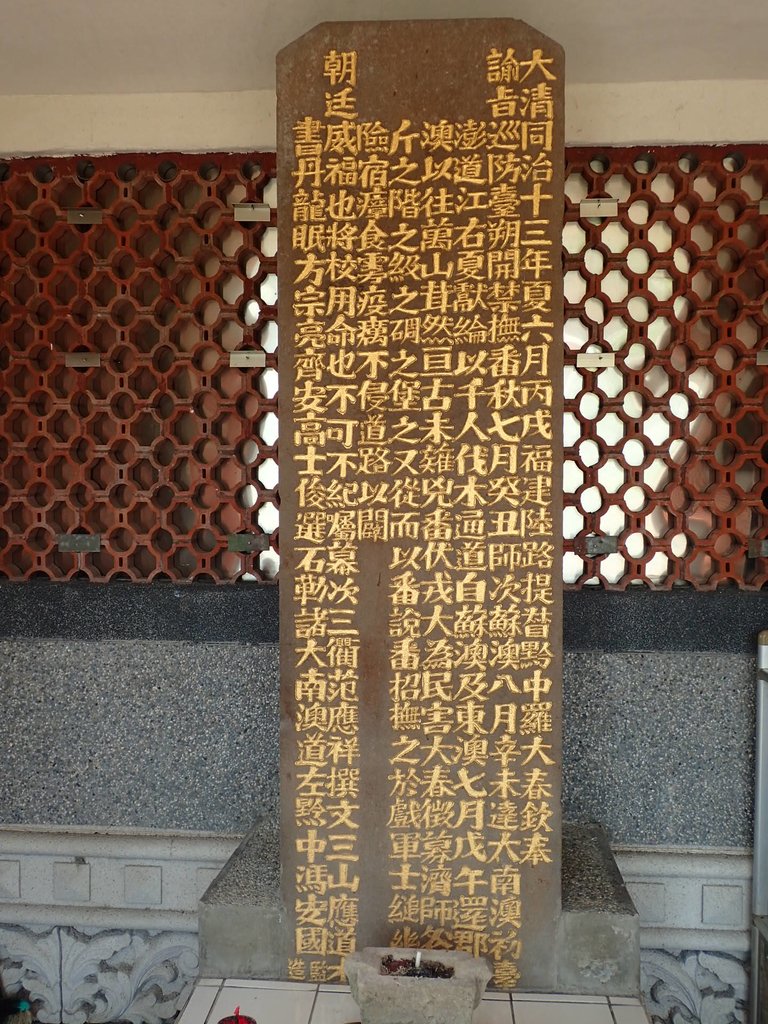 大清同治十三年夏六月丙戌福建陸路提督黔中羅大春欽奉
諭旨巡防臺朔開禁撫番秋七月癸丑師次蘇澳八月辛未達大南澳初臺
澎道江右夏獻綸以千人伐木通道自蘇澳及東澳七月戊午還郡
澳以往萬山茸然亘古未薙兇番伏戎大為民害大春徵募濟師
斤之階之級之碉之堡之又從而以番說番招撫之於戲軍士縋
險宿瘴食雺疫癘不侵道路以闢
朝廷威福也將校用命也不可不紀屬幕次三衢范應祥撰文三山應道本
書丹龍眠方宗亮齊安高士俊選石勒諸大南澳道左黔中馮安國監造